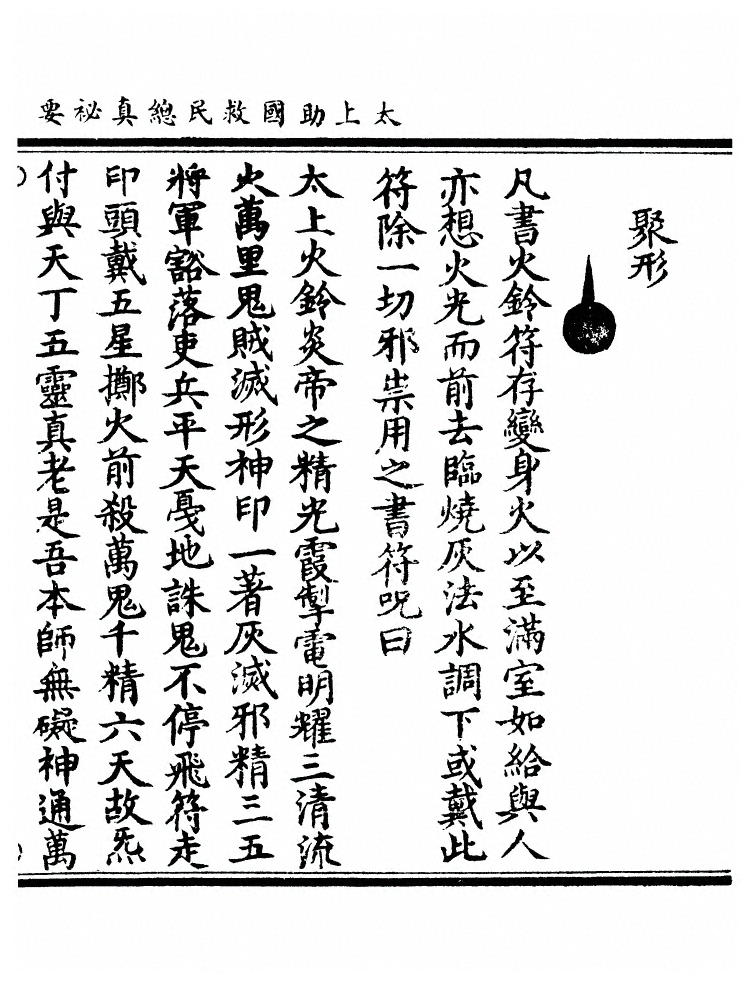 太上助國救民總真祕要
聚形
凡書火鈴符存變身火以至滿室如給與人
亦想火光而前去臨燒灰法水調下或戴此
符除一切邪祟用之書符呪曰
太上火鈴炎帝之精光霞掣電明耀三清流
火萬里鬼賊滅形神印一著灰滅邪精三五
將軍豁落吏兵平天戞地誅鬼不停飛符走
印頭戴五星擲火前殺萬鬼千精六天故炁
付與天丁五靈真老是吾本師無礙神通萬